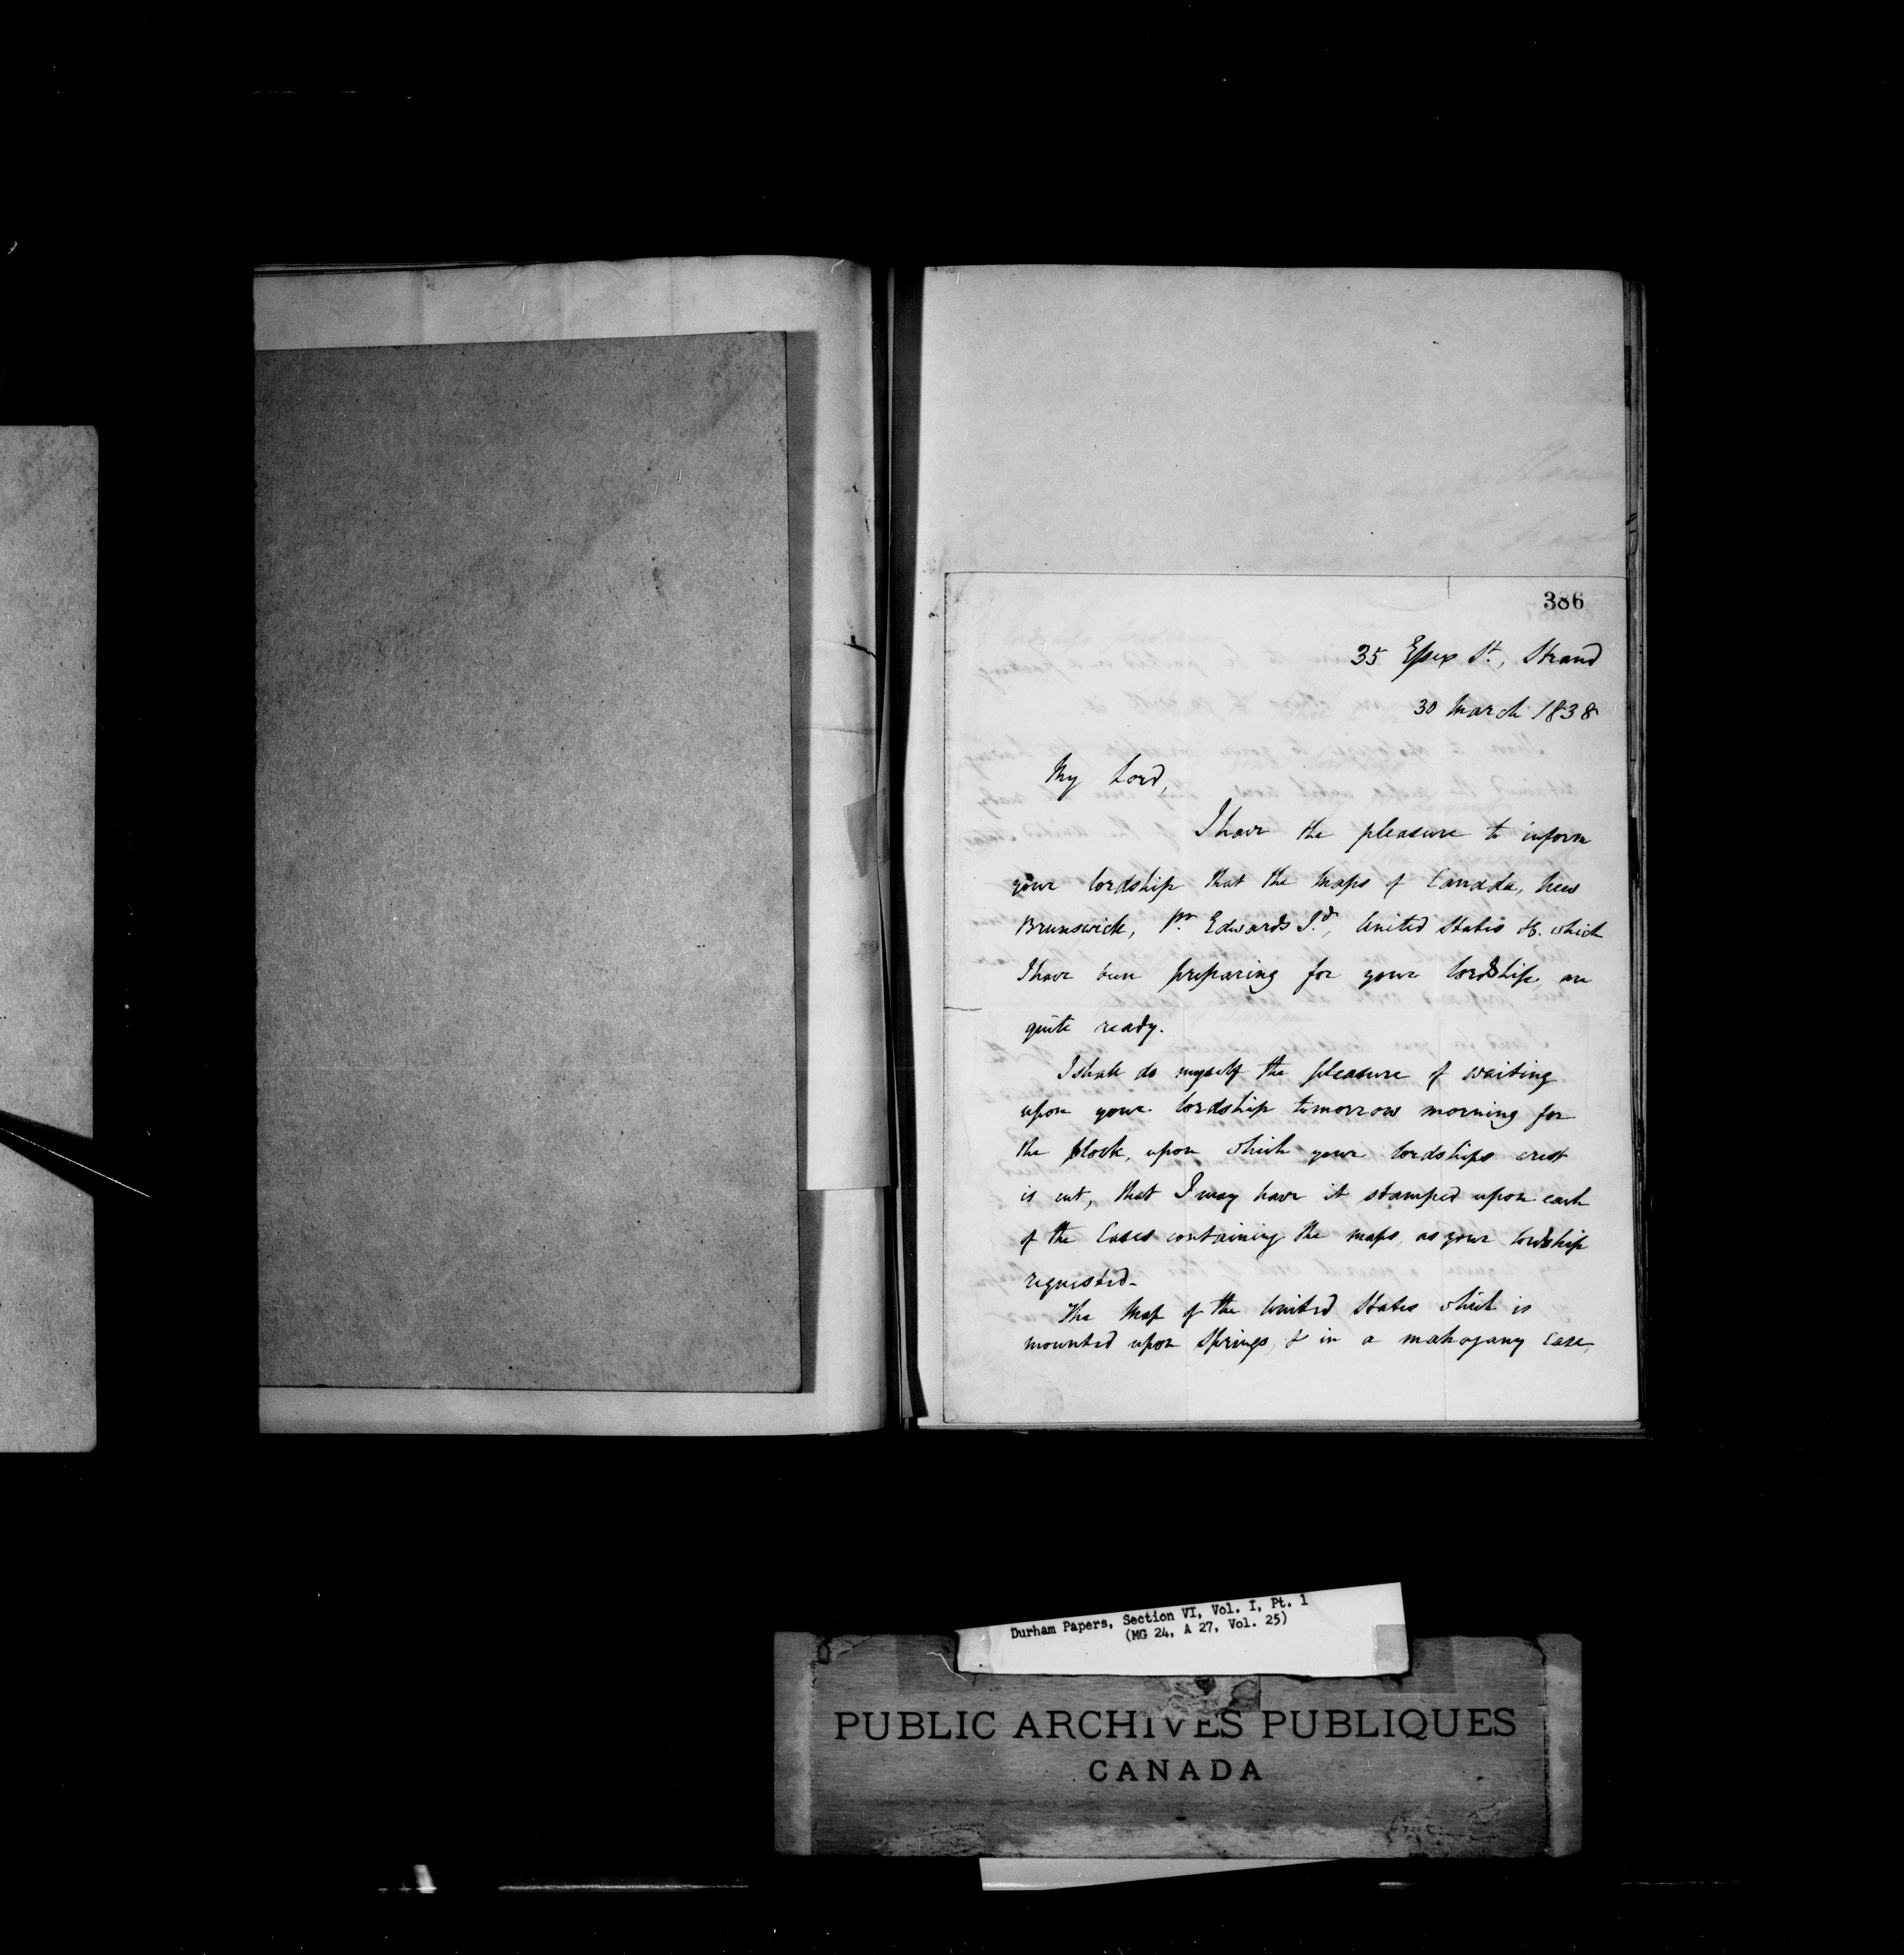 386
35 Essex St., Strand
30 March 1838
My Lord,
I have the pleasure to inform
your lordship that the Maps of Canada, New
Brunswick, Pr. Edwards Id., United States &c. which
I have been preparing for your lordship, are
quite ready.
I shall do myself the pleasure of waiting
upon your lordship tomorrow morning for
the block, upon which your lordships crest
is cut, that I may have it stamped upon each
of the Cases containing the maps, as your lordship
requested.
The Map of the United States which is
mounted upon Springs, & in a mahogany case,
Durham Papers, Section VI, Vol. I, Pt. 1
(MG 24, A 27, Vol. 25)
PUBLIC ARCHIVES PUBLIQUES
CANADA